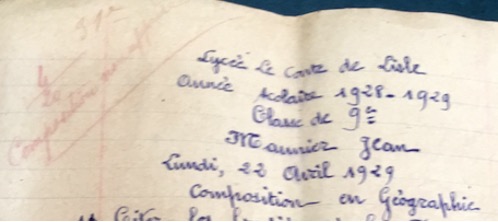 Lycée Le Conte de Lisle
Année scolaire 1928-1929
Classe de 9e
Maunier Jean
Lundi, 22 Avril 1929
Composition en Géographie
4
20
Composition